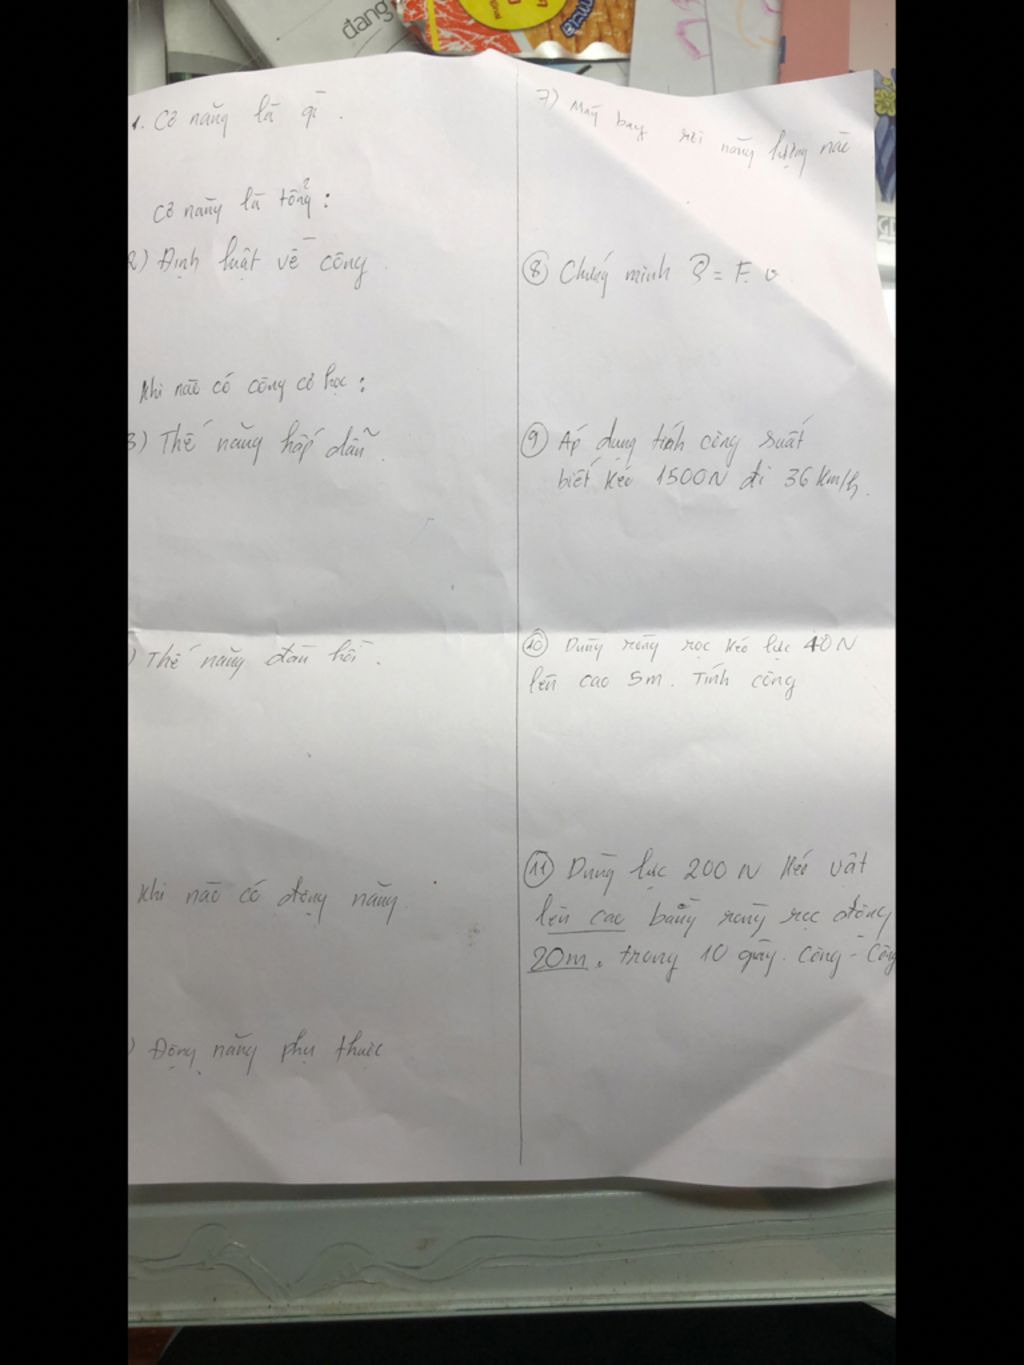 đang
1. Cơ năng là gì.
Cơ năng là tổng:
2) Định luật về công.
Khi nào có công cơ học:
3) Thế năng hấp dẫn.
) Thế năng đàn hồi.
Khi nào có động năng
) Động năng phụ thuộc
7) Máy bay rơi năng lượng nào
⑧ Chứng minh P = F. v.
⑨ Áp dụng tính công suất
biết kéo 1500N đi 36 km/h.
⑩ Dùng ròng rọc kéo lực 40N
lên cao 5m. Tính công
⑪ Dùng lực 200 N kéo vật
lên cao bằng ròng rọc động
20m. trong 10 giây. Công - Công